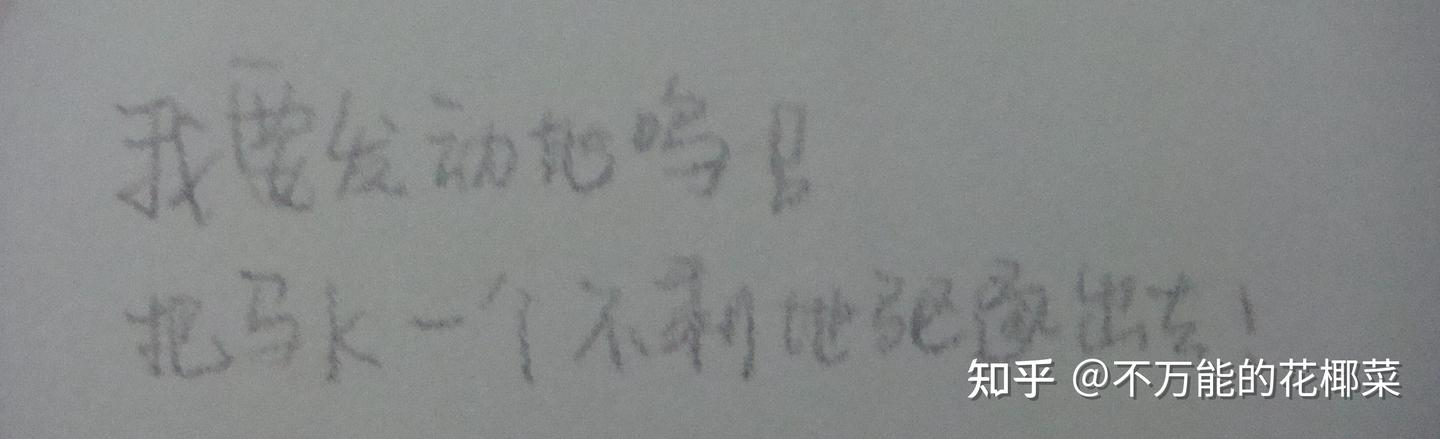 我要发动地鸣!!
把马k一个不剩地驱逐出去!
知乎 @不万能的花椰菜